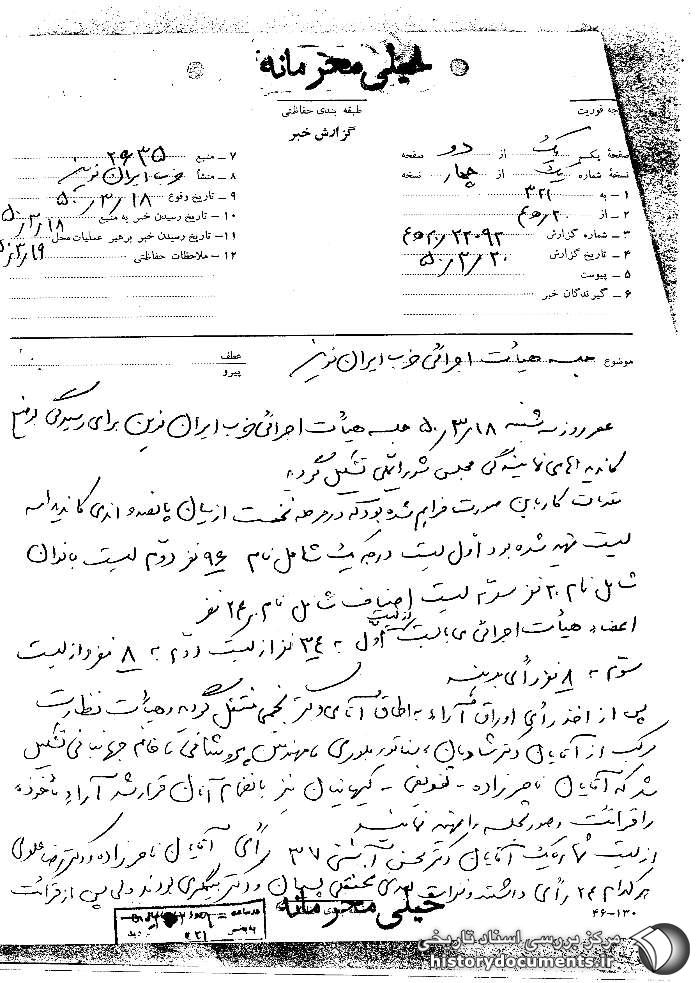 خیلی محرمانه
طبقه بندی حفاظتی
گزارش خبر
جه فوریت
صفحه یک از دو صفحه
نسخه شماره یک از چهار نسخه
۱ - به ۳۲۱
۲ - از ۲۰ هـ ۴
۳ - شماره گزارش ۲۲۰۹۲ / ۲۰ هـ ۴
۴ - تاریخ گزارش ۵۰/۳/۲۰
۵ - پیوست
۶ - گیرندگان خبر
۷ - منبع ۲۶۳۵
۸ - منشأ حزب ایران نوین
۹ - تاریخ وقوع ۵۰/۳/۱۸
۱۰ - تاریخ رسیدن خبر به منبع ۵۰/۳/۱۸
۱۱ - تاریخ رسیدن خبر برهبر عملیات محل ۵۰/۳/۱۹
۱۲ - ملاحظات حفاظتی
موضوع جلسه هیأت اجرائی حزب ایران نوین
عطف
پیرو
عصر روز سه شنبه ۵۰/۳/۱۸ جلسه هیأت اجرائی حزب ایران نوین برای رسیدگی بوضع
کاندیداهای نمایندگی مجلس شورایملی تشکیل گردید
مقدمات کار باین صورت فراهم شده بود که در مرحله نخست از میان پانصد و اندی کاندیدا سه
لیست تهیه شده بود اول لیست درجه یک شامل نام ۹۶ نفر دوم لیست بانوان
شامل نام ۲۰ نفر سوم لیست اصناف شامل نام ۲۴ نفر
اعضاء هیأت اجرائی می بایست از لیست اول به ۳۴ نفر از لیست دوم به ۸ نفر و از لیست
سوم به ۸ نفر رأی بدهند
پس از اخذ رأی اوراق آراء به اطاق آقای دکتر منتقل گردید و هیأت نظارت
مرکب از آقایان دکتر شادمان، سناتور بلوری مهندس پروشانی خانم جهانبانی تشکیل
شد که آقایان ناصرزاده - - کیهانیان نیز بانضمام آنان قرار شد آراء مأخوذه
را قرائت و صورتجلسه را تهیه نمایند
از لیست شماره یک آقایان دکتر محسن آتشی ۳۷ رأی آقایان ناصرزاده و دکتر رضا علوی
هر کدام ۲۴ رأی داشتند و نفرات بعدی محققی پسیان و دکتر بیگلری بودند ولی پس از قرائت
خیلی محرمانه
۴۶-۱۳۰
مرکز بررسی اسناد تاریخی
historydocuments.ir